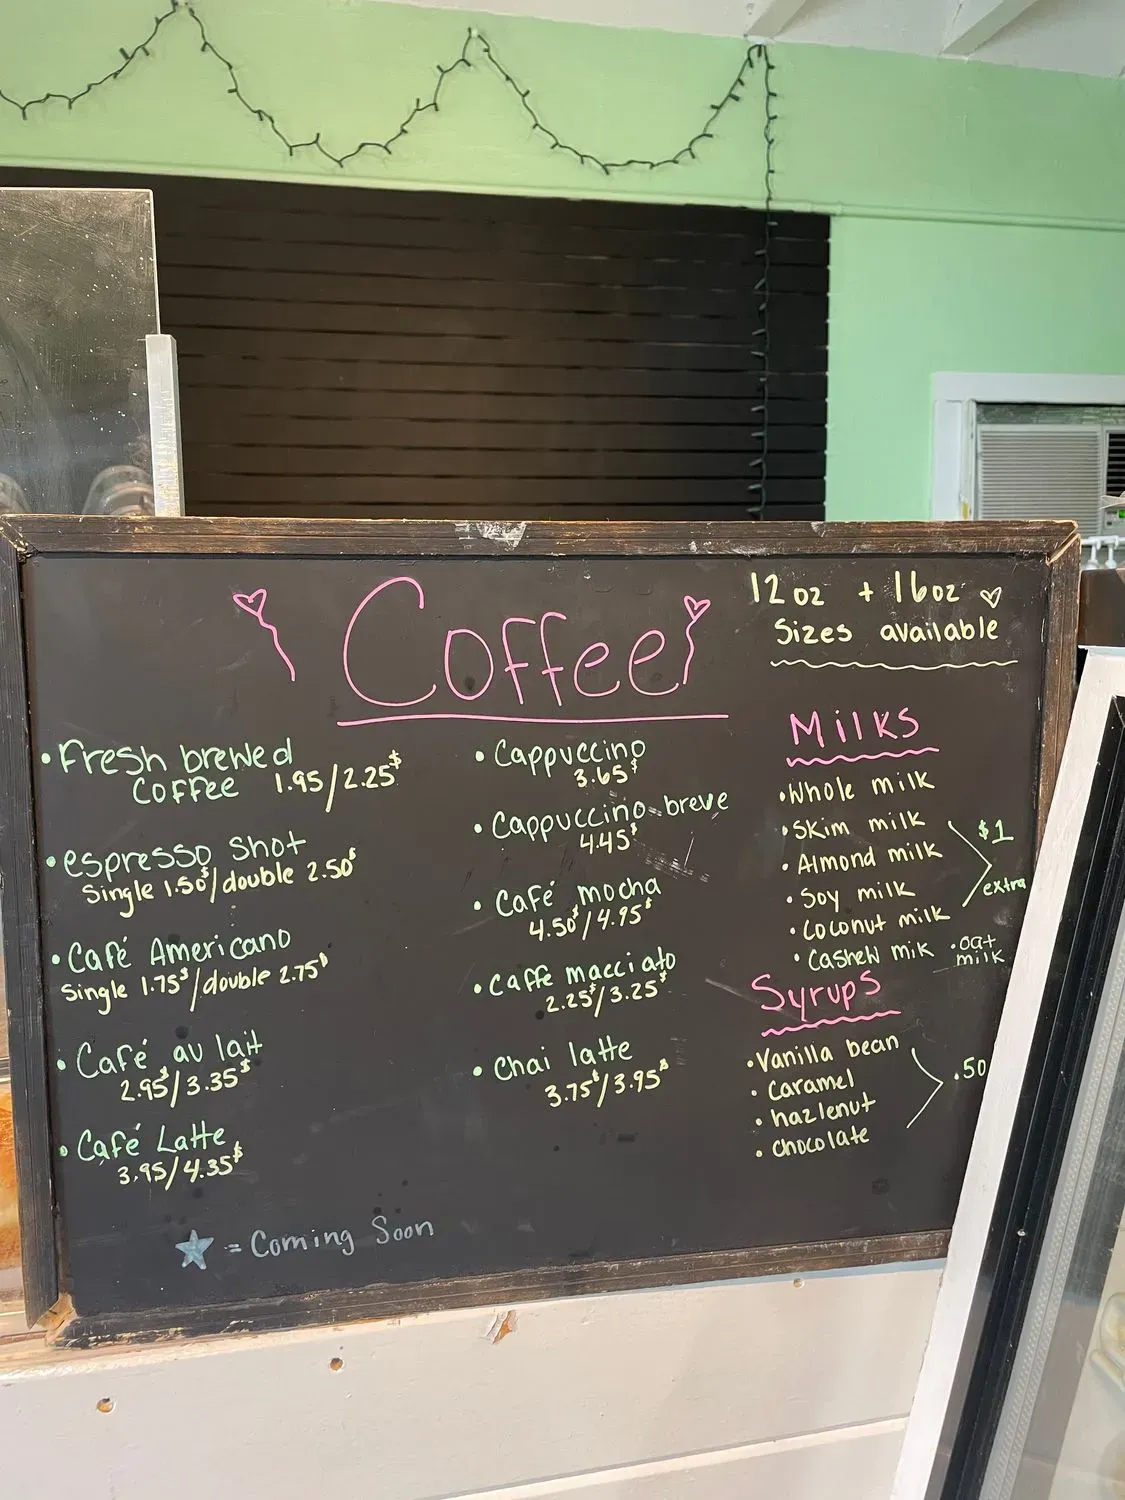 Coffee
12oz + 16oz
Sizes available
• Fresh brewed
Coffee 1.95/2.25$
• espresso shot
Single 1.50$/double 2.50$
• Café Americano
Single 1.75$/double 2.75$
• Café au lait
2.95$/3.35$
• Café Latte
3.95/4.35$
= Coming Soon
• Cappuccino
3.65$
• Cappuccino breve
4.45$
• Café mocha
4.50$/4.95$
• Caffe macciato
2.25$/3.25$
• Chai latte
3.75$/3.95$
Milks
• Whole milk
• Skim milk
• Almond milk
• Soy milk
• Coconut milk
• Cashew mik
• oat
milk
$1
extra
Syrups
• Vanilla bean
• Caramel
• hazlenut
• chocolate
.50